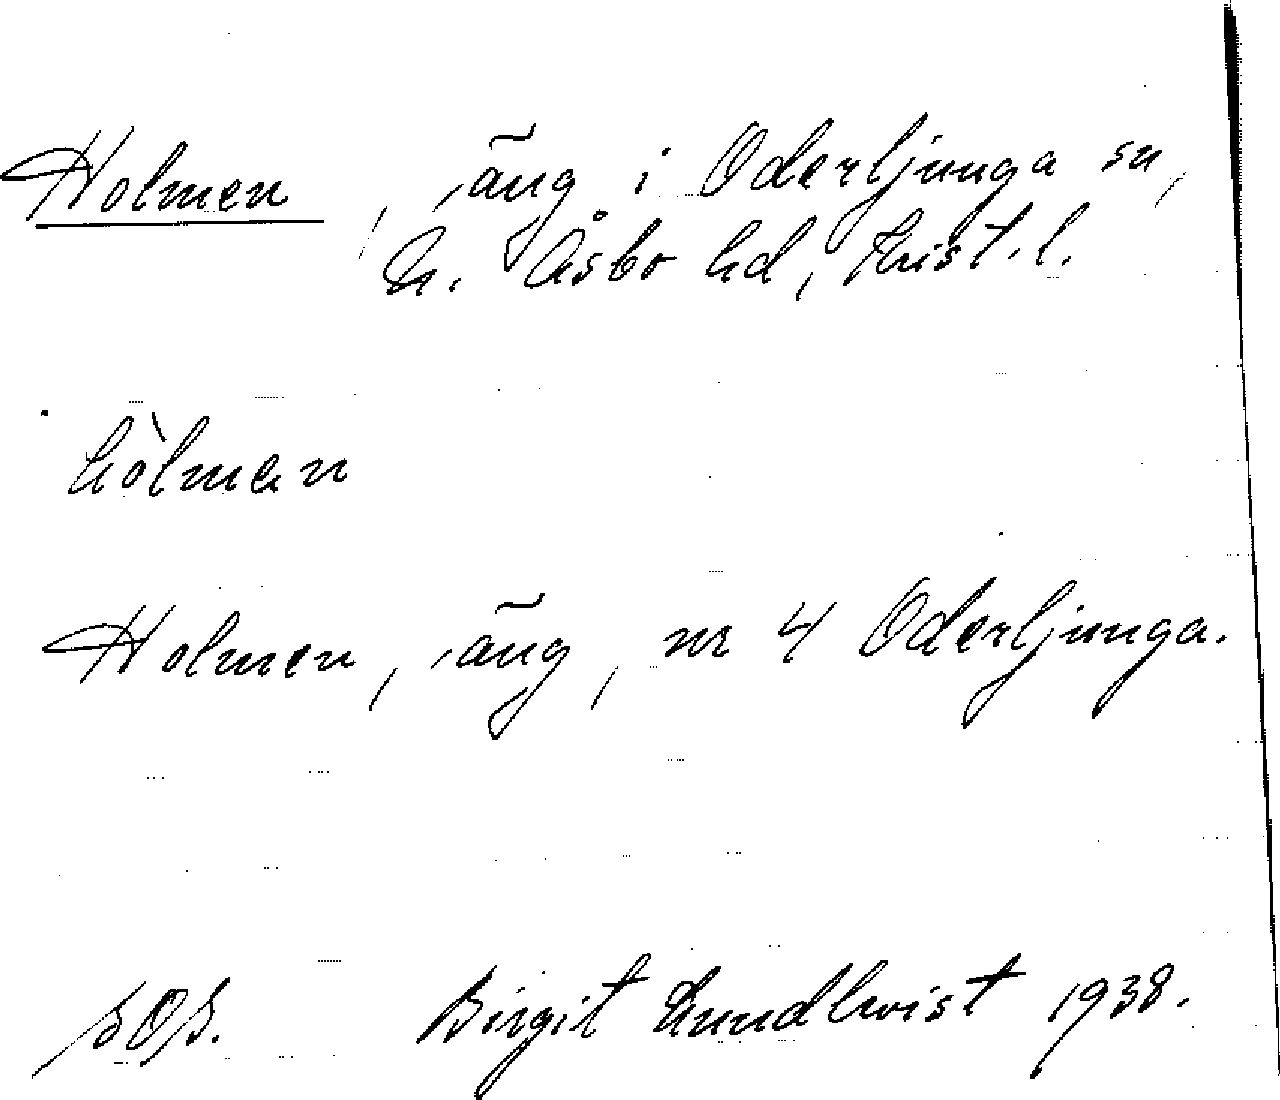 Holmen, äng i Oderljunga sn,
N. Åsbo hd, Krist. l.
hòlmen
Holmen, äng, nr 4 Oderljunga.
SOS. Birgit Lundkvist 1938.